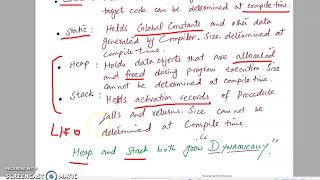 target code can be determined at compile time.
• Static : Holds Global Constants and other data
generated by Compiler. Size determined at
compile time.
• Heap : Holds data objects that are allocated
and freed during program execution. Size
cannot be determined at compile time.
• Stack : Holds activation records of Procedure
calls and returns. Size can not be
determined at Compile time.
LIFO
Heap and Stack both grow "DYNAMICALLY".
RECORDED WITH
SCREENCAST MATIC